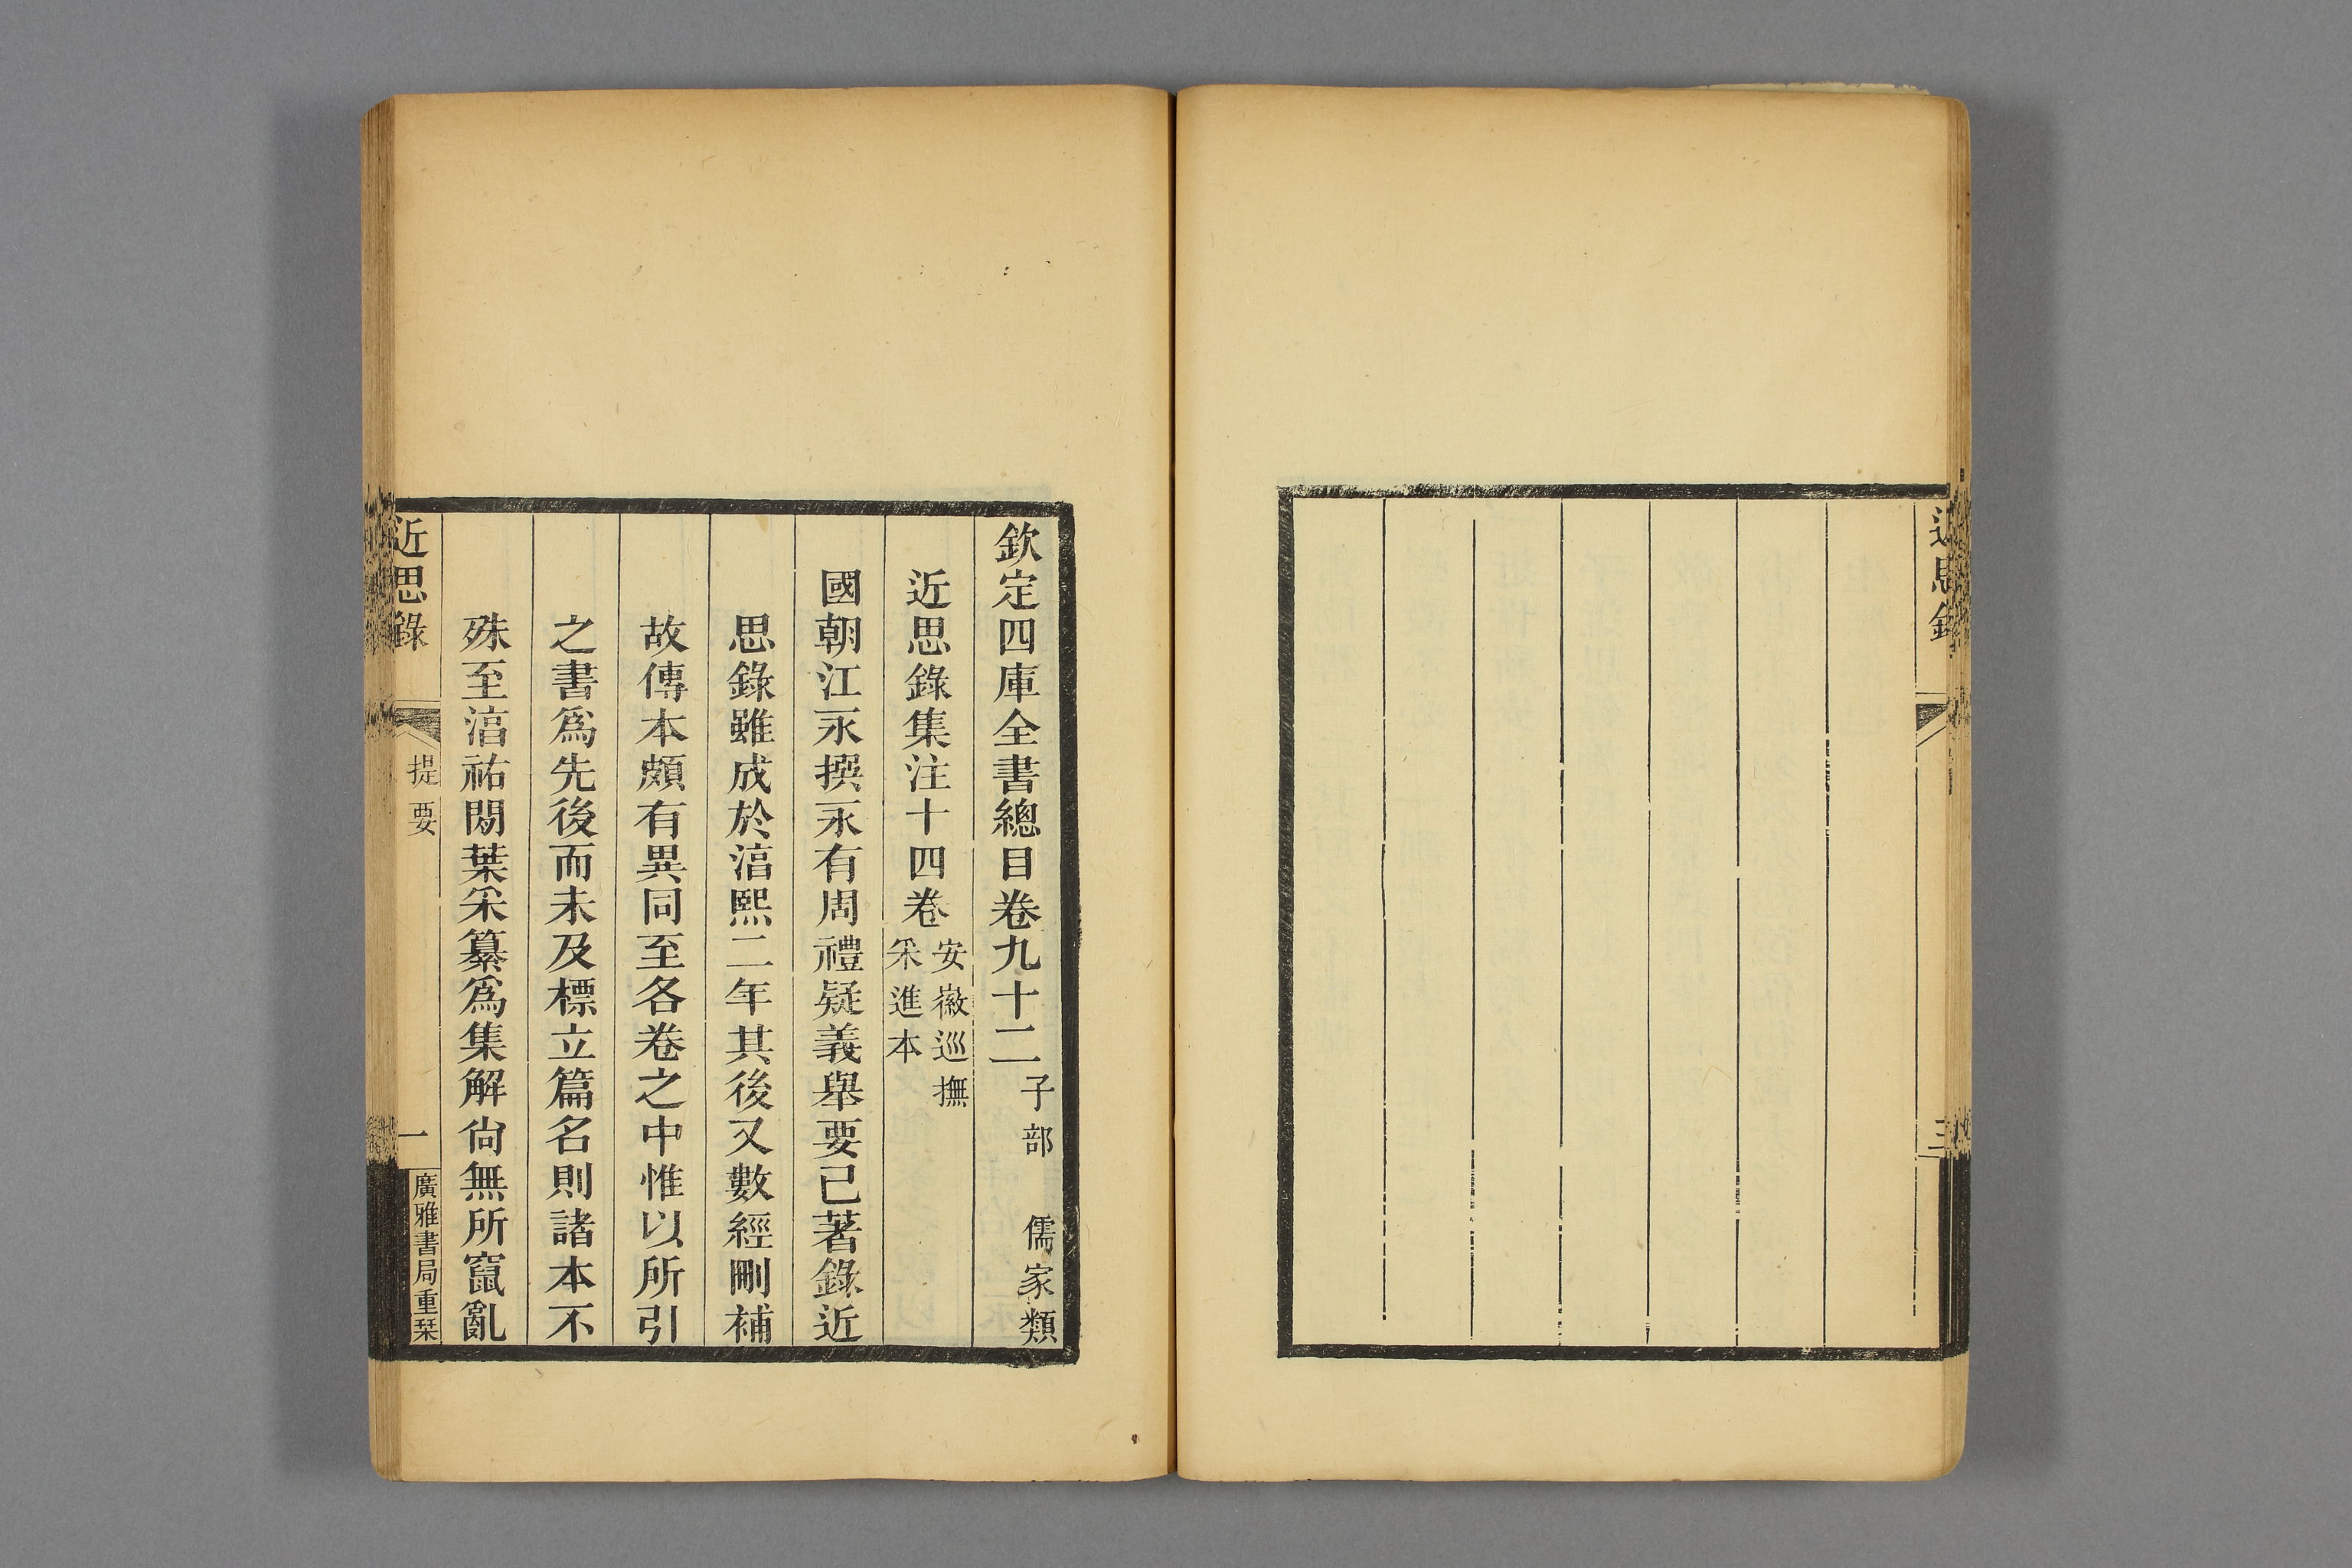 近思錄
三
欽定四庫全書總目卷九十二子部 儒家類
近思錄集注十四卷安徽巡撫
采進本
國朝江永撰永有周禮疑義舉要已著錄近
思錄雖成於湻熙二年其後又數經刪補
故傳本頗有異同至各卷之中惟以所引
之書爲先後而未及標立篇名則諸本不
殊至湻祐閒葉采纂爲集解尙無所竄亂
近思錄
提要
一
廣雅書局重栞